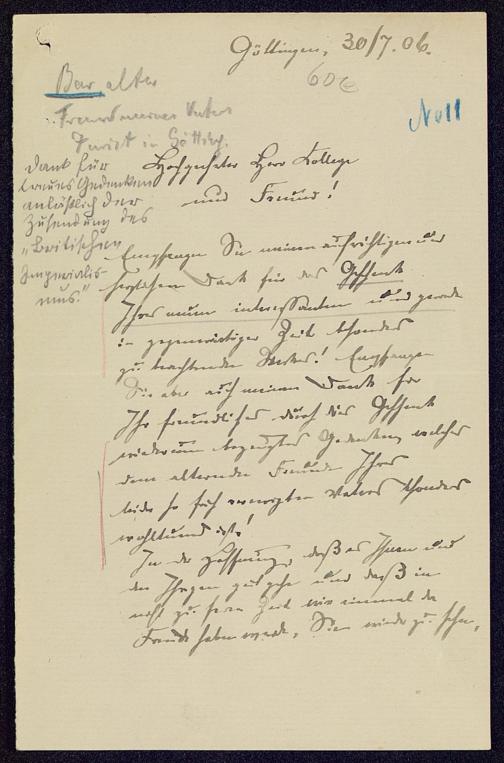 Göttingen, 30/7. 06.
60e
No 11
Bar alter
Freund meines Vaters
Jurist in Götting.
Dank für
treues Gedenken
anläßlich der
Zusendung des
„Britischen
Imperialis-
mus."
Hochgeehrter Herr Kollege
und Freund!
Empfangen Sie meinen aufrichtigen und
herzlichen Dank für das Geschenk
Ihres neuen interessanten und gerade
in gegenwärtiger Zeit besonders
zu beachtenden Werkes! Empfangen
Sie aber auch meinen Dank für
Ihr freundliches durch dies Geschenk
wiederum bezeugtes Gedenken, welches
dem alternden Freunde Ihres
leider so früh verewigten Vaters besonders
wohltuend ist!
In der Hoffnung, daß es Ihnen und
den Ihrigen gut gehe und daß in
nicht zu ferner Zeit wir einmal die
Freude haben werden, Sie wieder zu sehen,